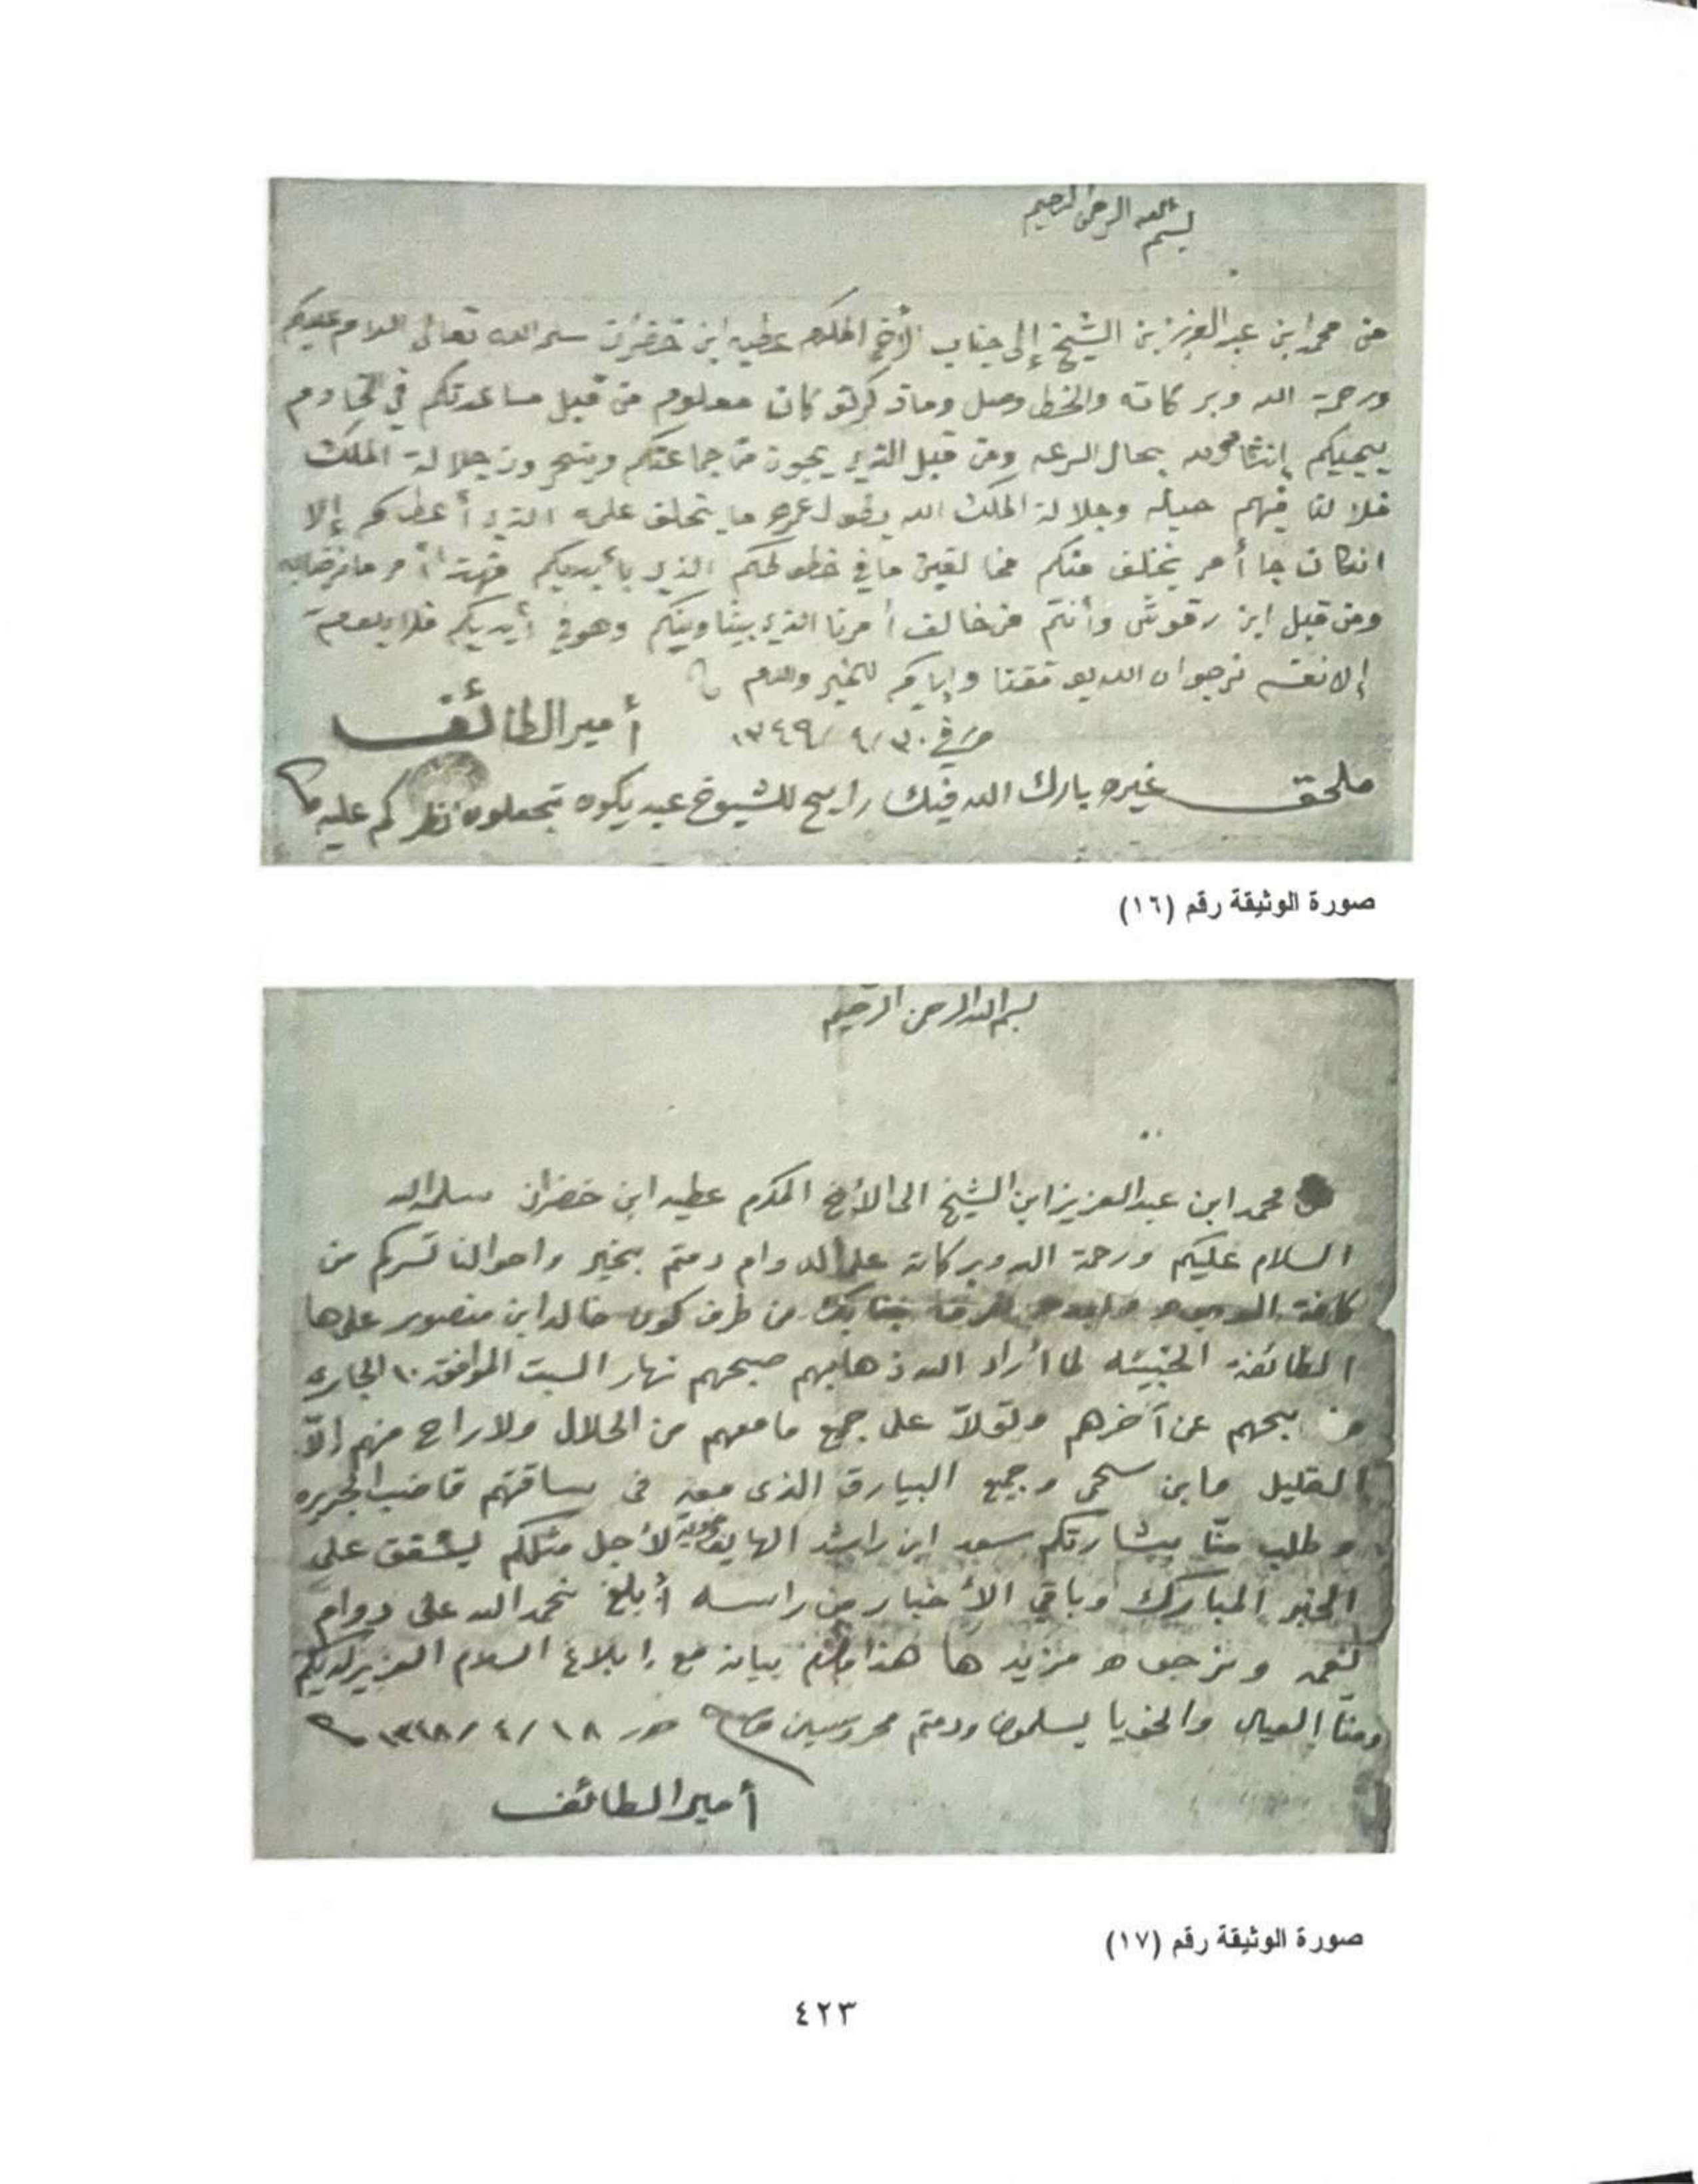 بسم الله الرحمن الرحيم
من محمد ابن عبد العزيز بن الشيخ إلى جناب الأخ المكرم عطيه ابن خضران سلمه الله تعالى السلام عليكم
ورحمة الله وبركاته والخط وصل وماذكرتو كان معلوم من قبل مساعدتكم في
يجيكم إنشاء الله بحال السرعه ومن قبل الذي يجون من جماعتكم جلالة الملك
فلا لنا فيهم حيله وجلالة الملك الله يطول عمره ما يخلف عليه الذي أعطاكم إلا
انكان جا أمر يخلف منكم ما في خطوطكم الذي بأيديكم أمر
ومن قبل ابن رقوش وأنتم من خالف أمرنا الذي بيننا وبينكم وهو في أيديكم فلا
إلا نفسه نرجوا ان الله يوفقنا وإياكم للخير والسلام
في ٣٠/٤/١٣٤٩ أمير الطائف
ملحق غيره بارك الله فيك رايح للشيوخ عيد يكون تجعلون نظركم عليه
صورة الوثيقة رقم (١٦)
بسم الله الرحمن الرحيم
محمد ابن عبد العزيز ابن الشيخ الى الأخ المكرم عطيه ابن خضران سلمه الله
السلام عليكم ورحمة الله وبركاته على الدوام دمتم بخير واحوالنا تسركم من
كافة جنابك من طرف كون خالد ابن منصور على ها
الطائفة الخبيثه لما أراد الله ذهابهم صبحهم نهار السبت الموافق ١٠ الجاري
عن آخرهم على جميع ما معهم من الحلال ولا راح منهم إلّا
القليل وجميع البيارق الذى معهم فى ساقتهم
وطلب منّا بشارتكم سعد ابن راشد لأجل مثلكم يشفق على
الخبر المبارك وباقي الأخبار من راسه أبلغ نحمد الله على دوام
نعمه ونرجوه مزيدها هذا بيانه مع إبلاغ السلام العزيز لديكم
ومنّا العيال والخويا يسلمون ودمتم محروسين ١٨/٤/١٣٤٨
أمير الطائف
صورة الوثيقة رقم (١٧)
٤٢٣